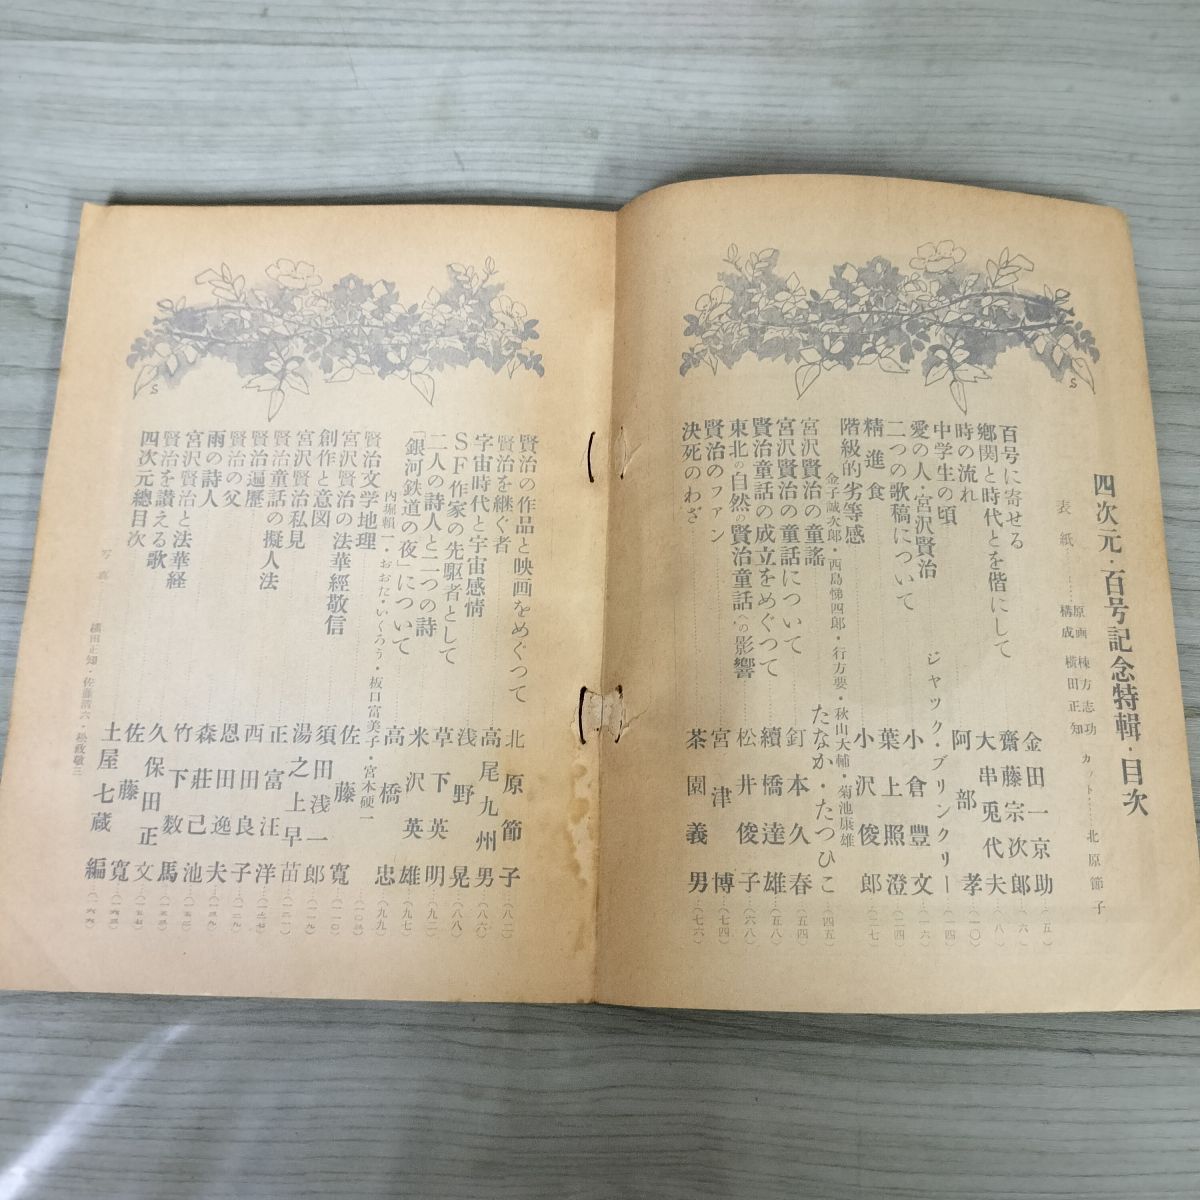 四次元・百号記念特輯・目次
表紙……原画 棟方志功 カット……北原節子
構成 横田正知
百号に寄せる 金田一京助 (五)
郷関と時代とを偕にして 齋藤宗次郎 (六)
時の流れ 大串兎代夫 (八)
中学生の頃 阿部孝 (一〇)
愛の人・宮沢賢治 ジャック・ブリンクリー (一四)
二つの歌稿について 小倉豊文 (一六)
精進食 葉上照澄 (二四)
階級的劣等感 小沢俊郎 (二七)
金子誠次郎・西島悌四郎・行方要・秋山大輔・菊池展雄
宮沢賢治の童謡 たなか・たつひこ (四五)
宮沢賢治の童話について 釘本久春 (五四)
賢治童話の成立をめぐって 續橋達雄 (五八)
東北の自然の賢治童話への影響 松井俊子 (六八)
賢治のファン 宮津博 (七四)
決死のわざ 茶園義男 (七六)
賢治の作品と映画をめぐつて 北原節子 (八二)
賢治を継ぐ者 高尾九州男 (八六)
宇宙時代と宇宙感情
SF作家の先駆者として 浅野晃 (八八)
二人の詩人と二つの詩 草下英明 (九二)
「銀河鉄道の夜」について 米沢英雄 (九七)
内堀頼一・おおた・いくろう・坂口富美子・宮本硬一
賢治文学地理 高橋忠 (九九)
宮沢賢治の法華經敬信 佐藤寛 (一〇三)
創作と意図 須田浅一郎 (一一〇)
宮沢賢治私見 湯之上早苗 (一一九)
賢治童話の擬人法 正富汪洋 (一二一)
賢治遍歴 西田良子 (一二七)
賢治の父 恩田逸夫 (一二九)
雨の詩人 森荘已池 (一三九)
宮沢賢治と法華経 竹下数馬
賢治を讃える歌 久保田正文
四次元總目次 佐藤寛
土屋七蔵編 (一六六)
写真 横田正知・佐藤清六・